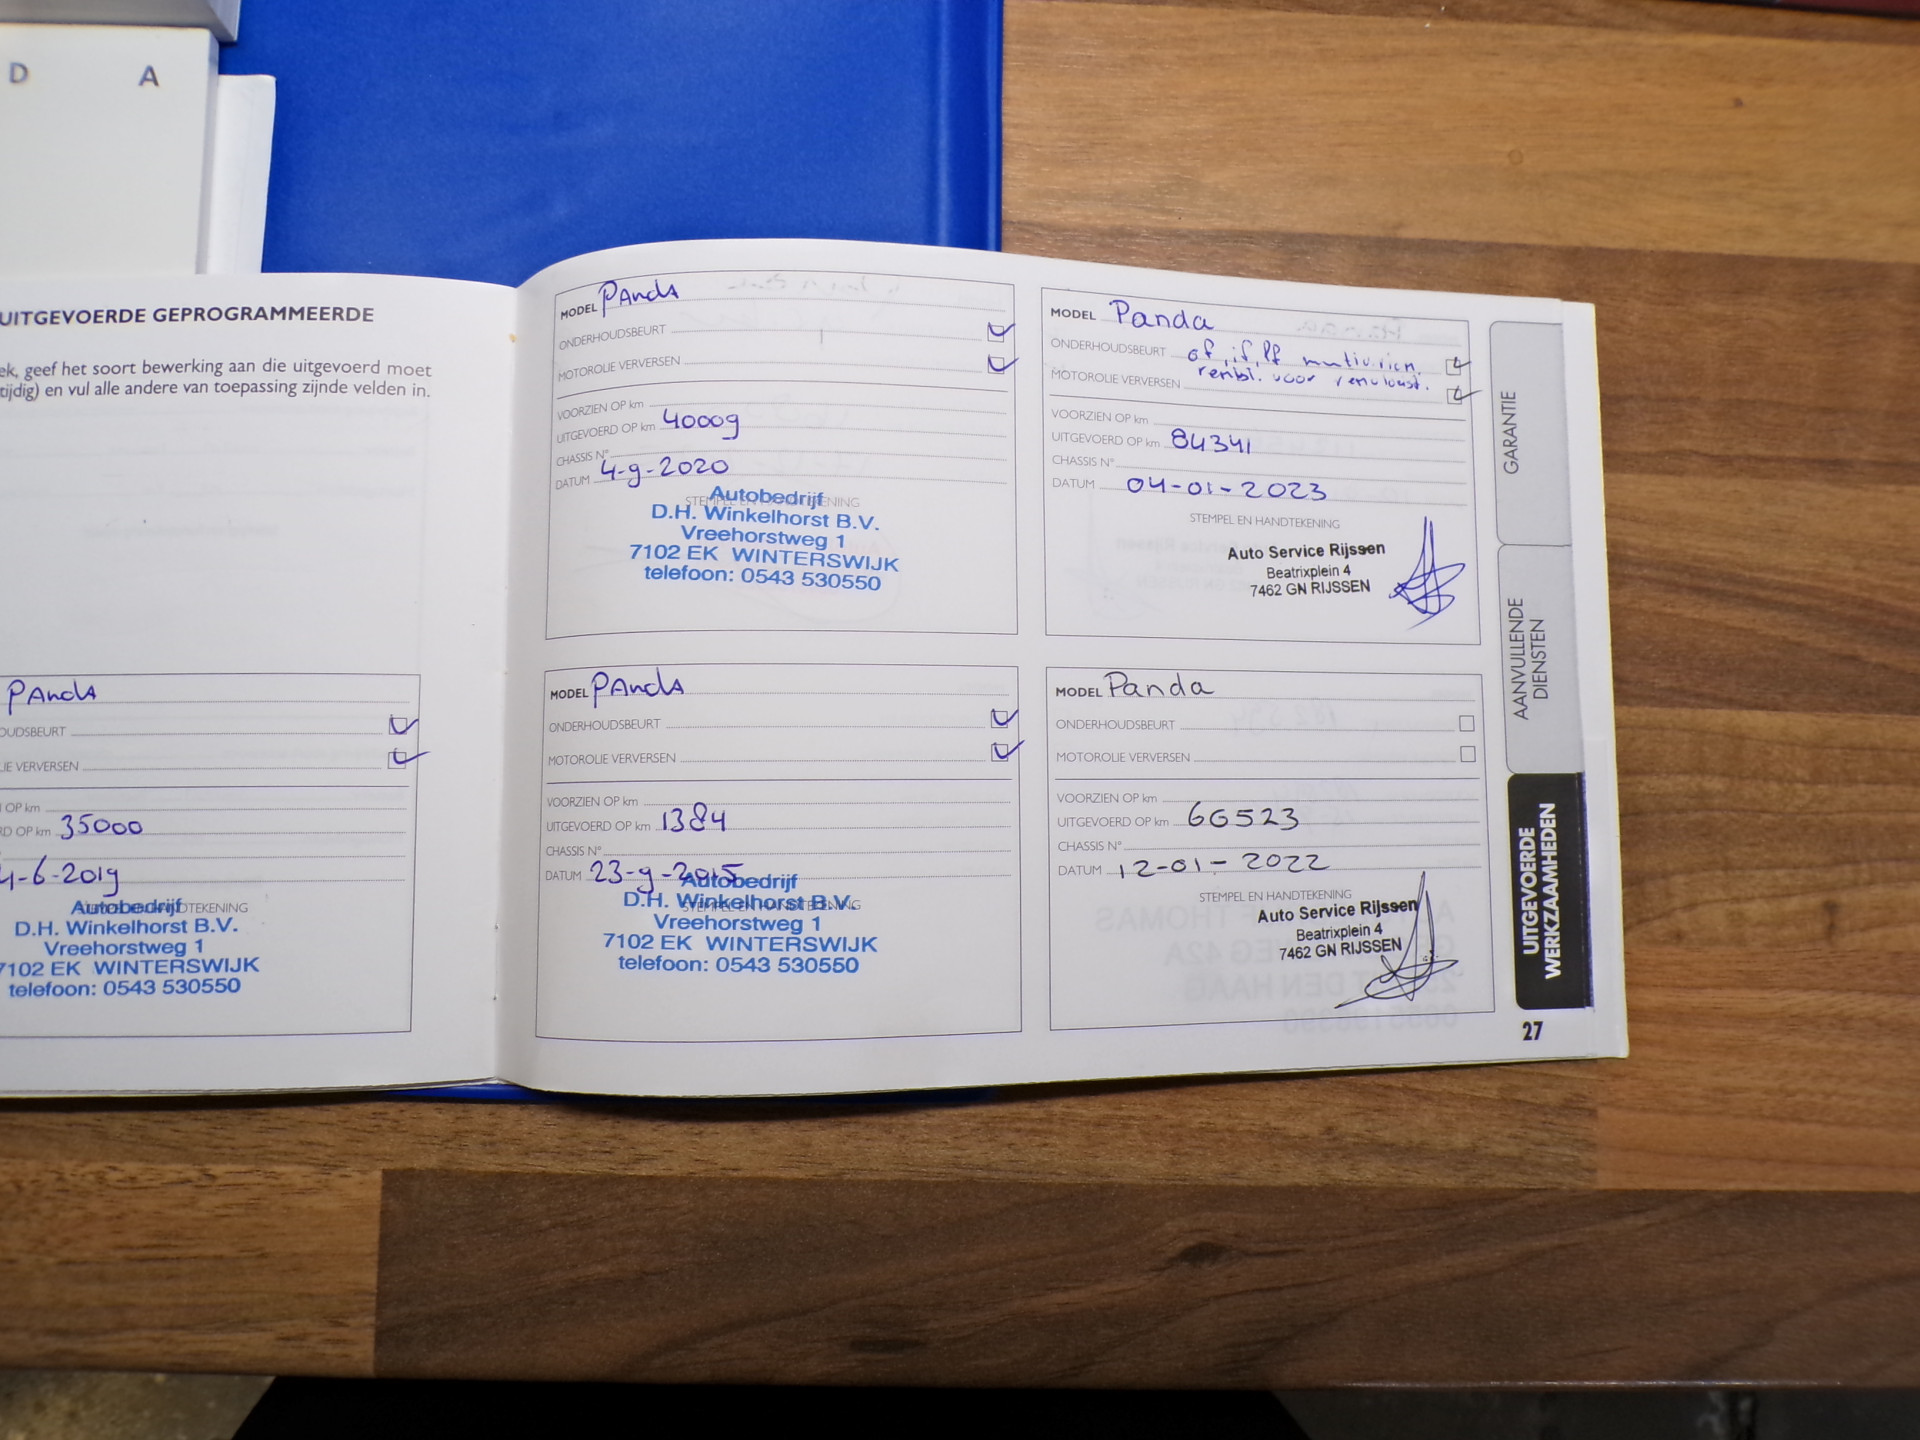 D A
UITGEVOERDE GEPROGRAMMEERDE
ek, geef het soort bewerking aan die uitgevoerd moet
tijdig) en vul alle andere van toepassing zijnde velden in.
Panda
OUDSBEURT
LIE VERVERSEN
OP km
RD OP km 35000
4-6-2019
HANDTEKENING
Autobedrijf
D.H. Winkelhorst B.V.
Vreehorstweg 1
7102 EK WINTERSWIJK
telefoon: 0543 530550
MODEL Panda
ONDERHOUDSBEURT
MOTOROLIE VERVERSEN
VOORZIEN OP km
UITGEVOERD OP km 40009
CHASSIS N°
DATUM 4-9-2020
STEMPEL EN HANDTEKENING
Autobedrijf
D.H. Winkelhorst B.V.
Vreehorstweg 1
7102 EK WINTERSWIJK
telefoon: 0543 530550
MODEL Panda
ONDERHOUDSBEURT of, if, lf
MOTOROLIE VERVERSEN voor
VOORZIEN OP km
UITGEVOERD OP km 84341
CHASSIS N°
DATUM 04-01-2023
STEMPEL EN HANDTEKENING
Auto Service Rijssen
Beatrixplein 4
7462 GN RIJSSEN
MODEL Panda
ONDERHOUDSBEURT
MOTOROLIE VERVERSEN
VOORZIEN OP km
UITGEVOERD OP km 1384
CHASSIS N°
DATUM 23-9-2015
STEMPEL EN HANDTEKENING
Autobedrijf
D.H. Winkelhorst B.V.
Vreehorstweg 1
7102 EK WINTERSWIJK
telefoon: 0543 530550
MODEL Panda
ONDERHOUDSBEURT
MOTOROLIE VERVERSEN
VOORZIEN OP km
UITGEVOERD OP km 66523
CHASSIS N°
DATUM 12-01-2022
STEMPEL EN HANDTEKENING
Auto Service Rijssen
Beatrixplein 4
7462 GN RIJSSEN
GARANTIE
AANVULLENDE
DIENSTEN
UITGEVOERDE
WERKZAAMHEDEN
27